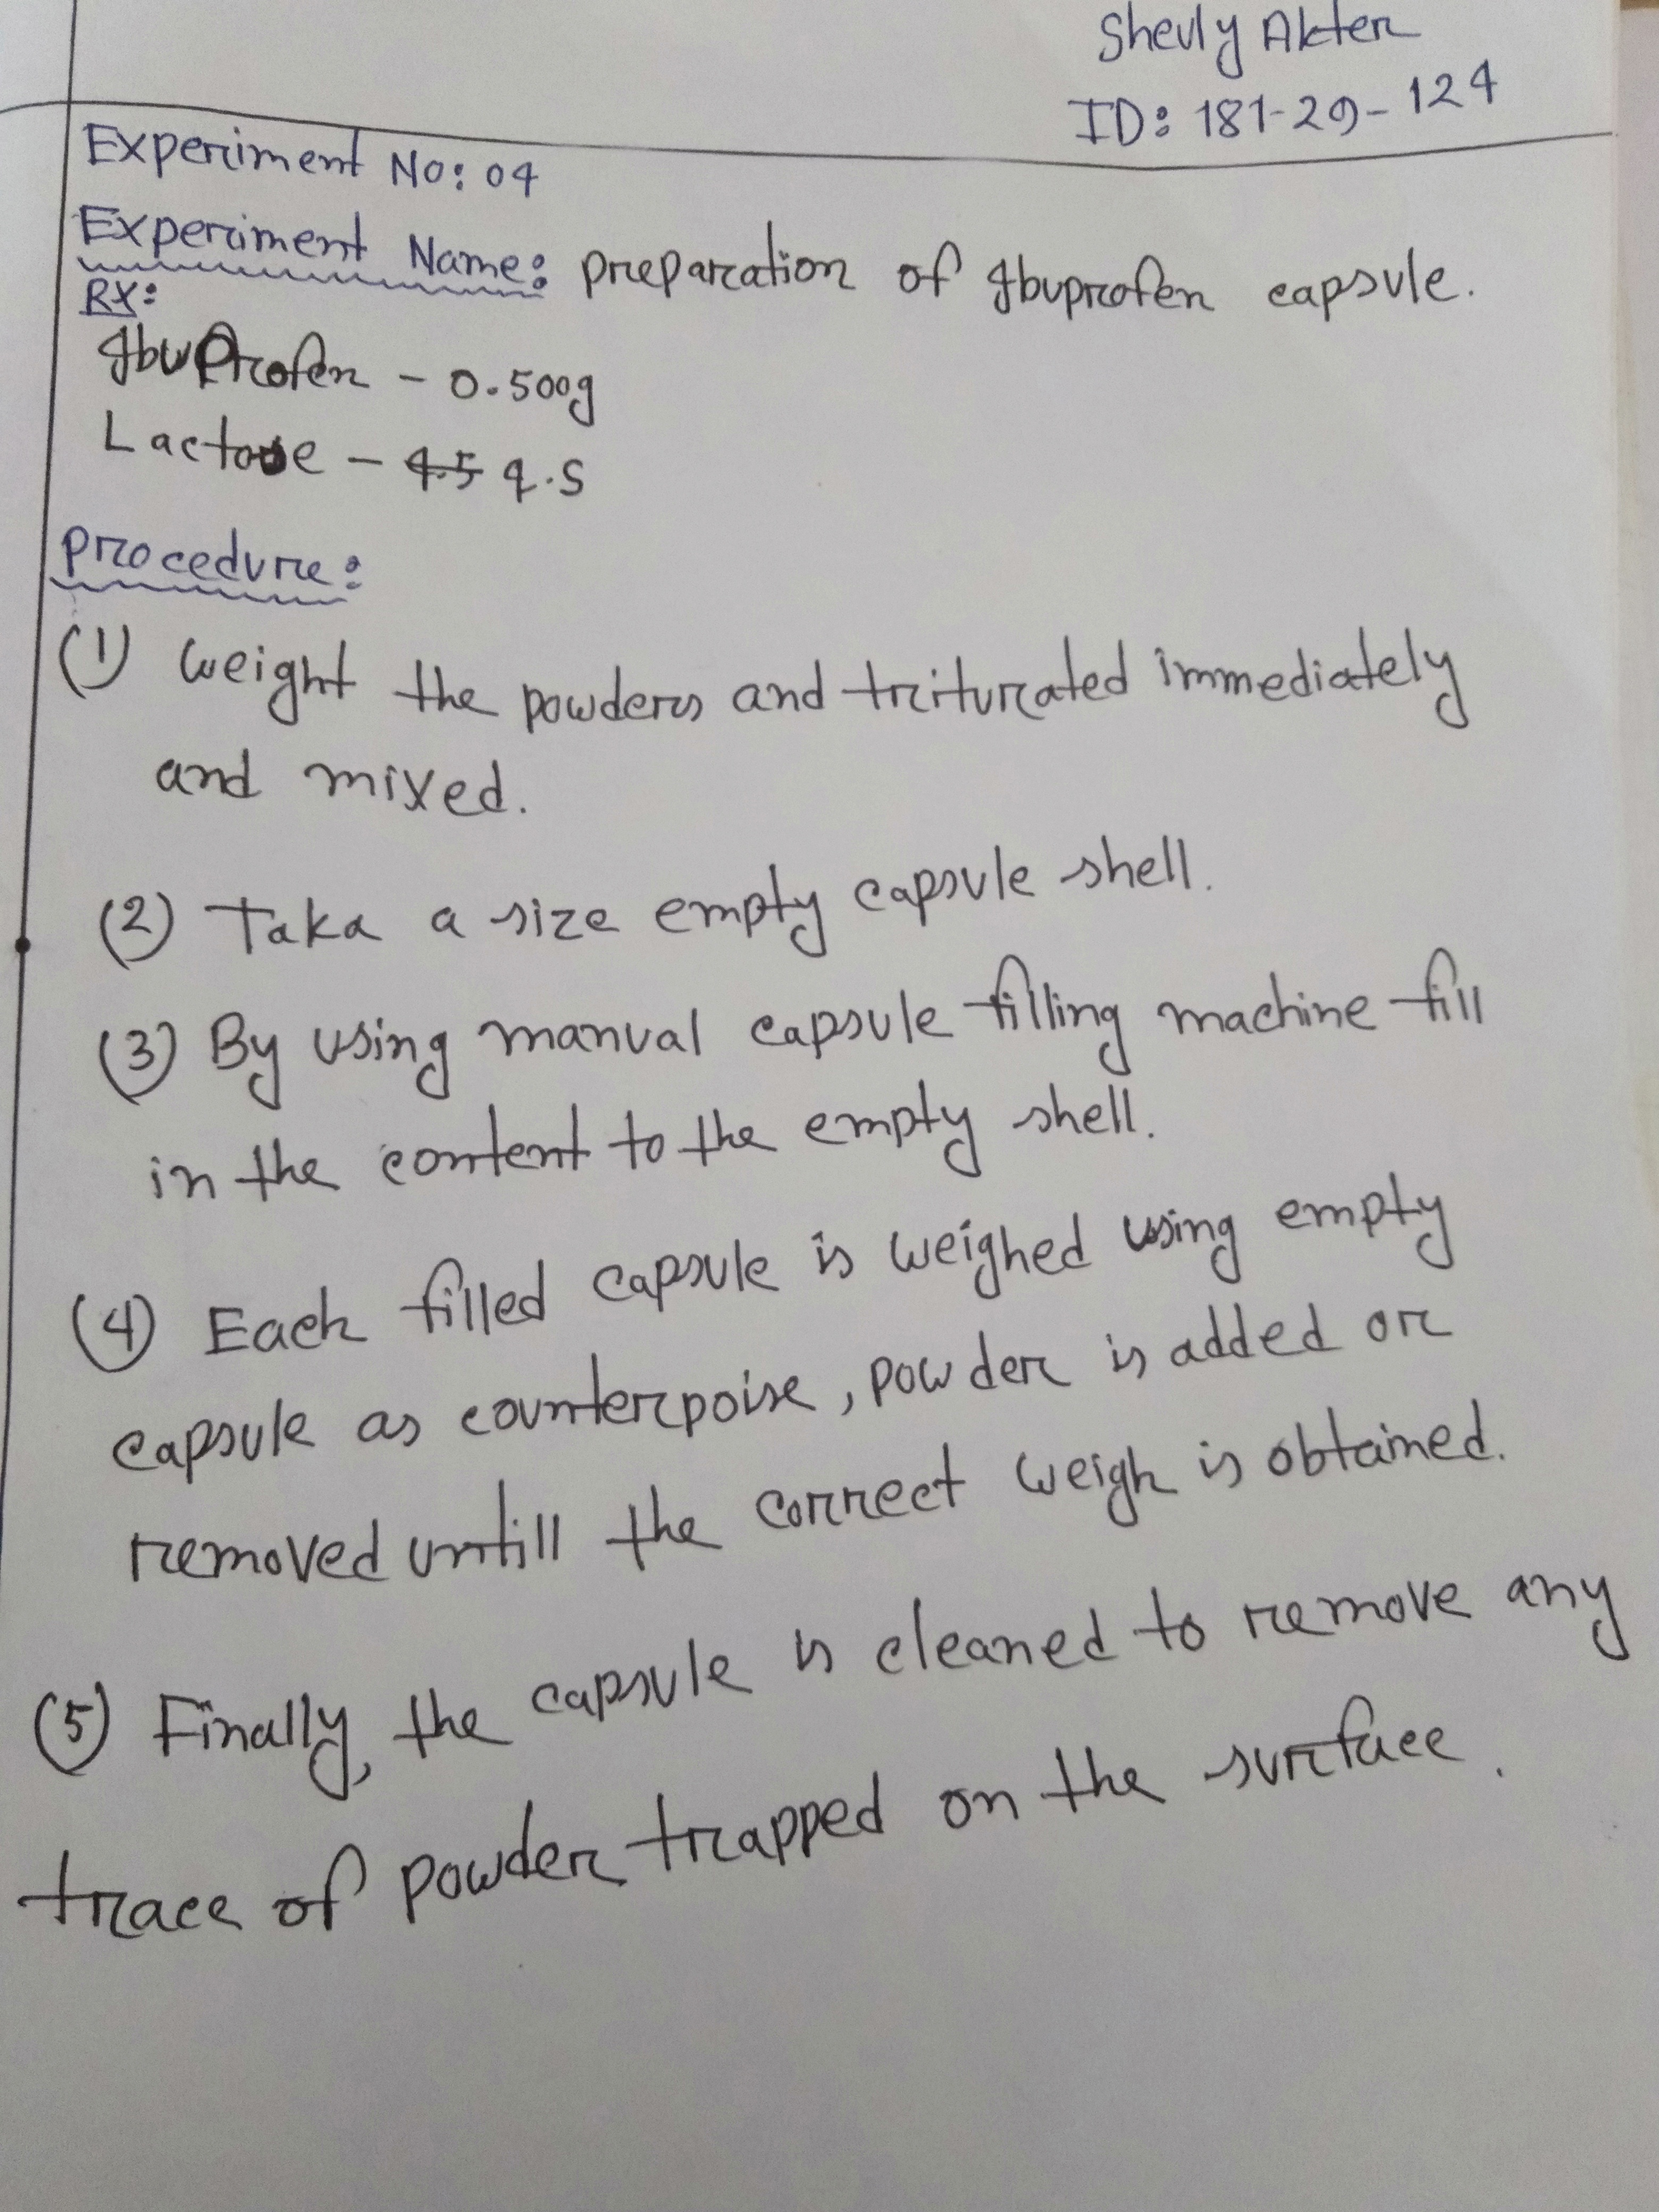 Sheuly Akter
ID: 181-29-124
Experiment No: 04
Experiment Name: preparation of Ibuprofen capsule.
RX:
Ibuprofen - 0.500g
Lactose - q.s
procedure:
(1) weight the powders and triturated immediately
and mixed.
(2) Taka a size empty capsule shell.
(3) By using manual capsule filling machine fill
in the content to the empty shell.
(4) Each filled capsule is weighed using empty
capsule as counterpoise, powder is added or
removed untill the correct weigh is obtained.
(5) Finally, the capsule is cleaned to remove any
trace of powder trapped on the surface.